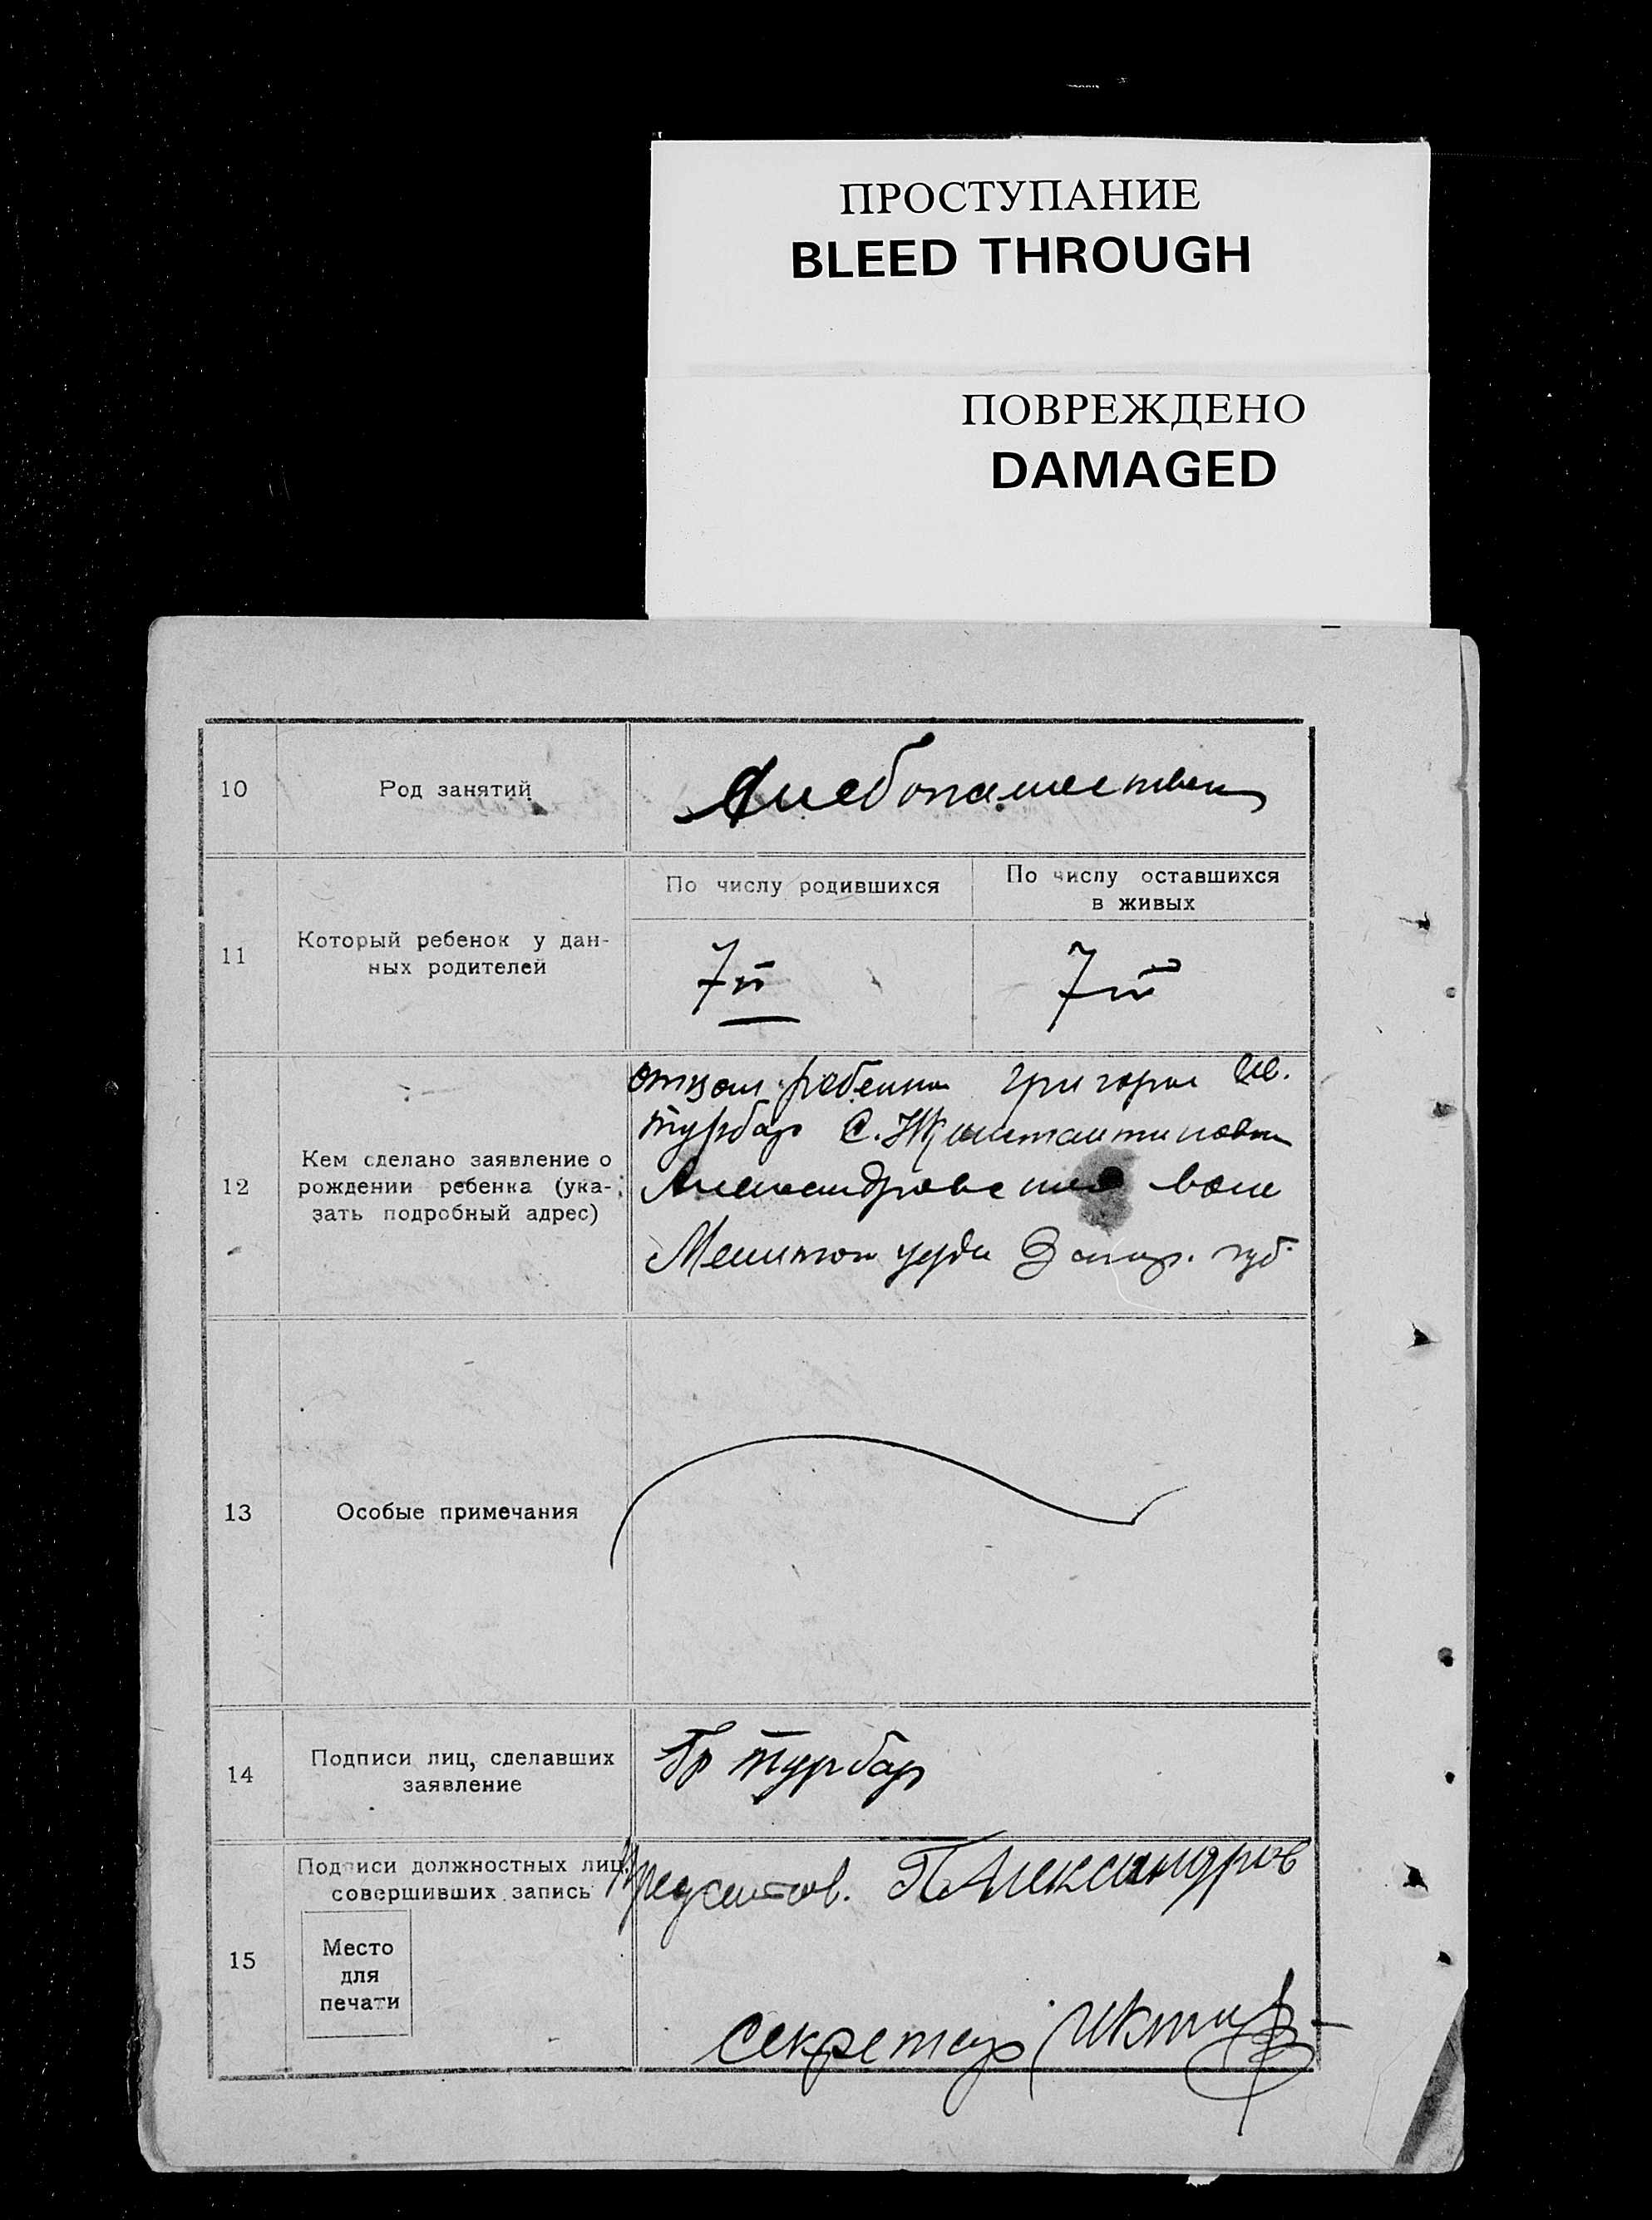 ПРОСТУПАНИЕ
BLEED THROUGH
ПОВРЕЖДЕНО
DAMAGED
10
Род занятий
Хлебопашествен
11
Который ребенок у дан-
ных родителей
По числу родившихся
По числу оставшихся
в живых
7й
7й
12
Кем сделано заявление о
рождении ребенка (ука-
зать подробный адрес)
отцом ребенка Григорием
Турбар С.
Александровской вол
уезда Запор. губ.
13
Особые примечания
14
Подписи лиц, сделавших
заявление
Гр Турбар
15
Подписи должностных лиц,
совершивших запись
Место
для
печати
П Александров
секретар